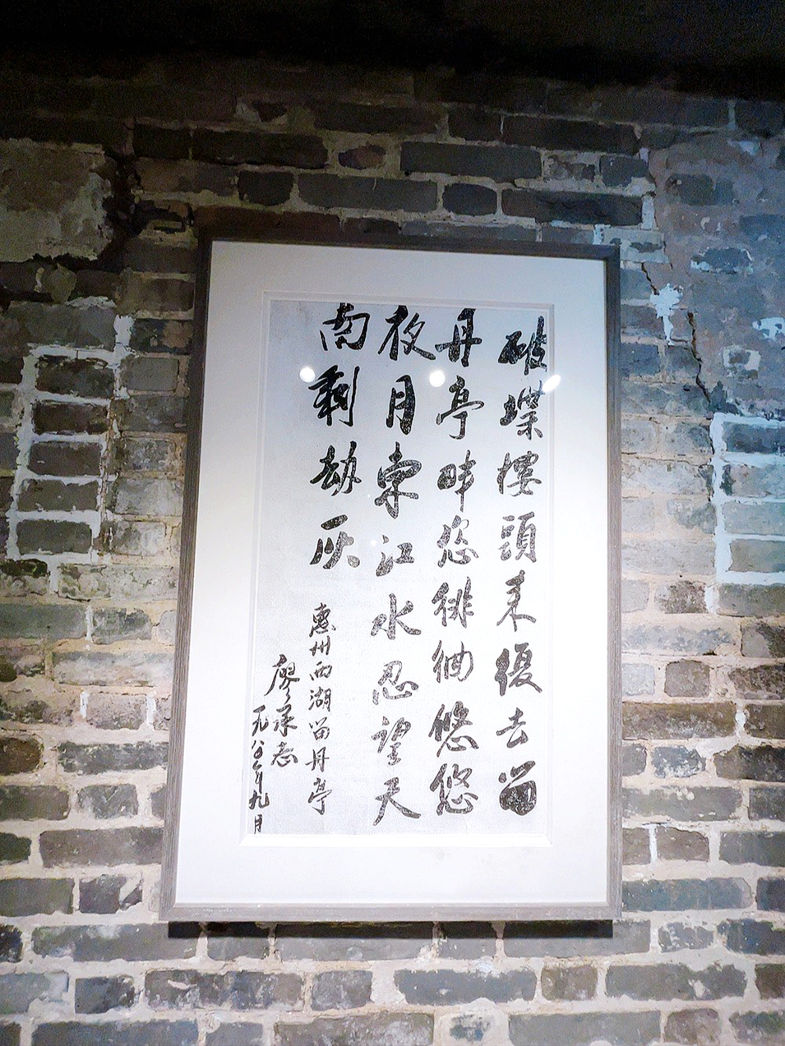 破堞樓頭来復去留
丹亭畔总徘徊悠悠
夜月東江水忍望天
南剩劫灰
惠州西湖留丹亭
廖承志
一九八二年九月